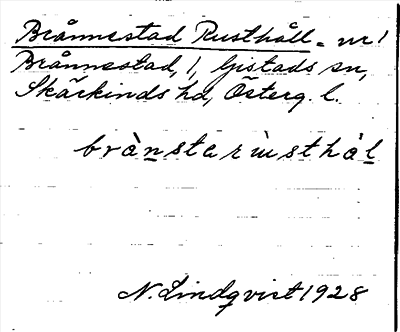 Brånnestad Rusthåll = nr 1
Brånnestad, 1, Gistads sn,
Skärkinds hd, Österg. l.
brànstarùsthål
N. Lindqvist 1928